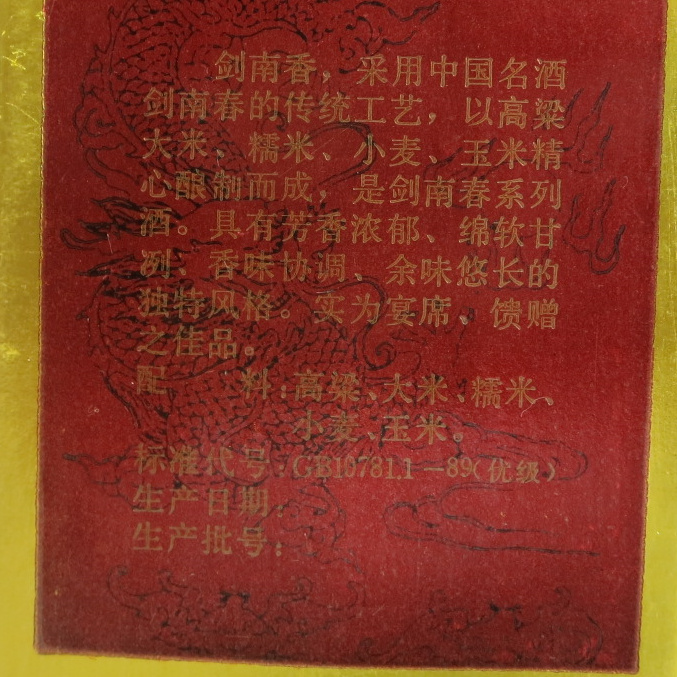 剑南香，采用中国名酒
剑南春的传统工艺，以高粱
大米、糯米、小麦、玉米精
心酿制而成，是剑南春系列
酒。具有芳香浓郁、绵软甘
冽、香味协调、余味悠长的
独特风格。实为宴席、馈赠
之佳品。
配 料:高粱、大米、糯米、
小麦、玉米。
标准代号:GB10781.1-89(优级)
生产日期:
生产批号: